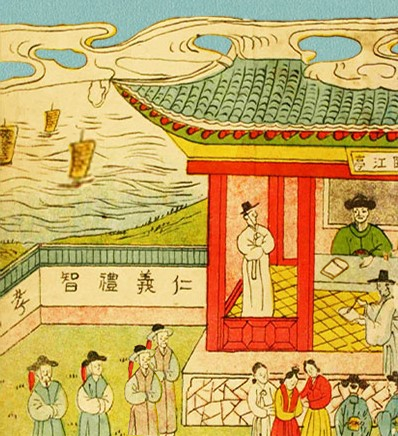 臨江亭
仁義禮智
孝